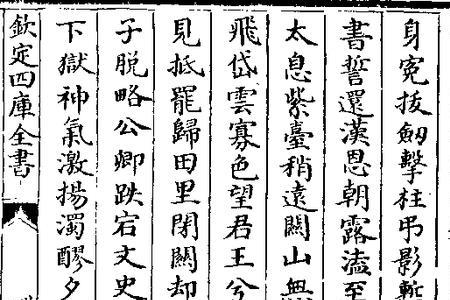 身寃拔劔擊柱弔影慙
書誓還漢恩朝露溘至
太息紫臺稍逺闗山無
飛岱雲寡色望君王兮
見抵罷歸田里閉闗却
子脫略公卿跌宕文史
下獄神氣激揚濁醪夕
欽定四庫全書